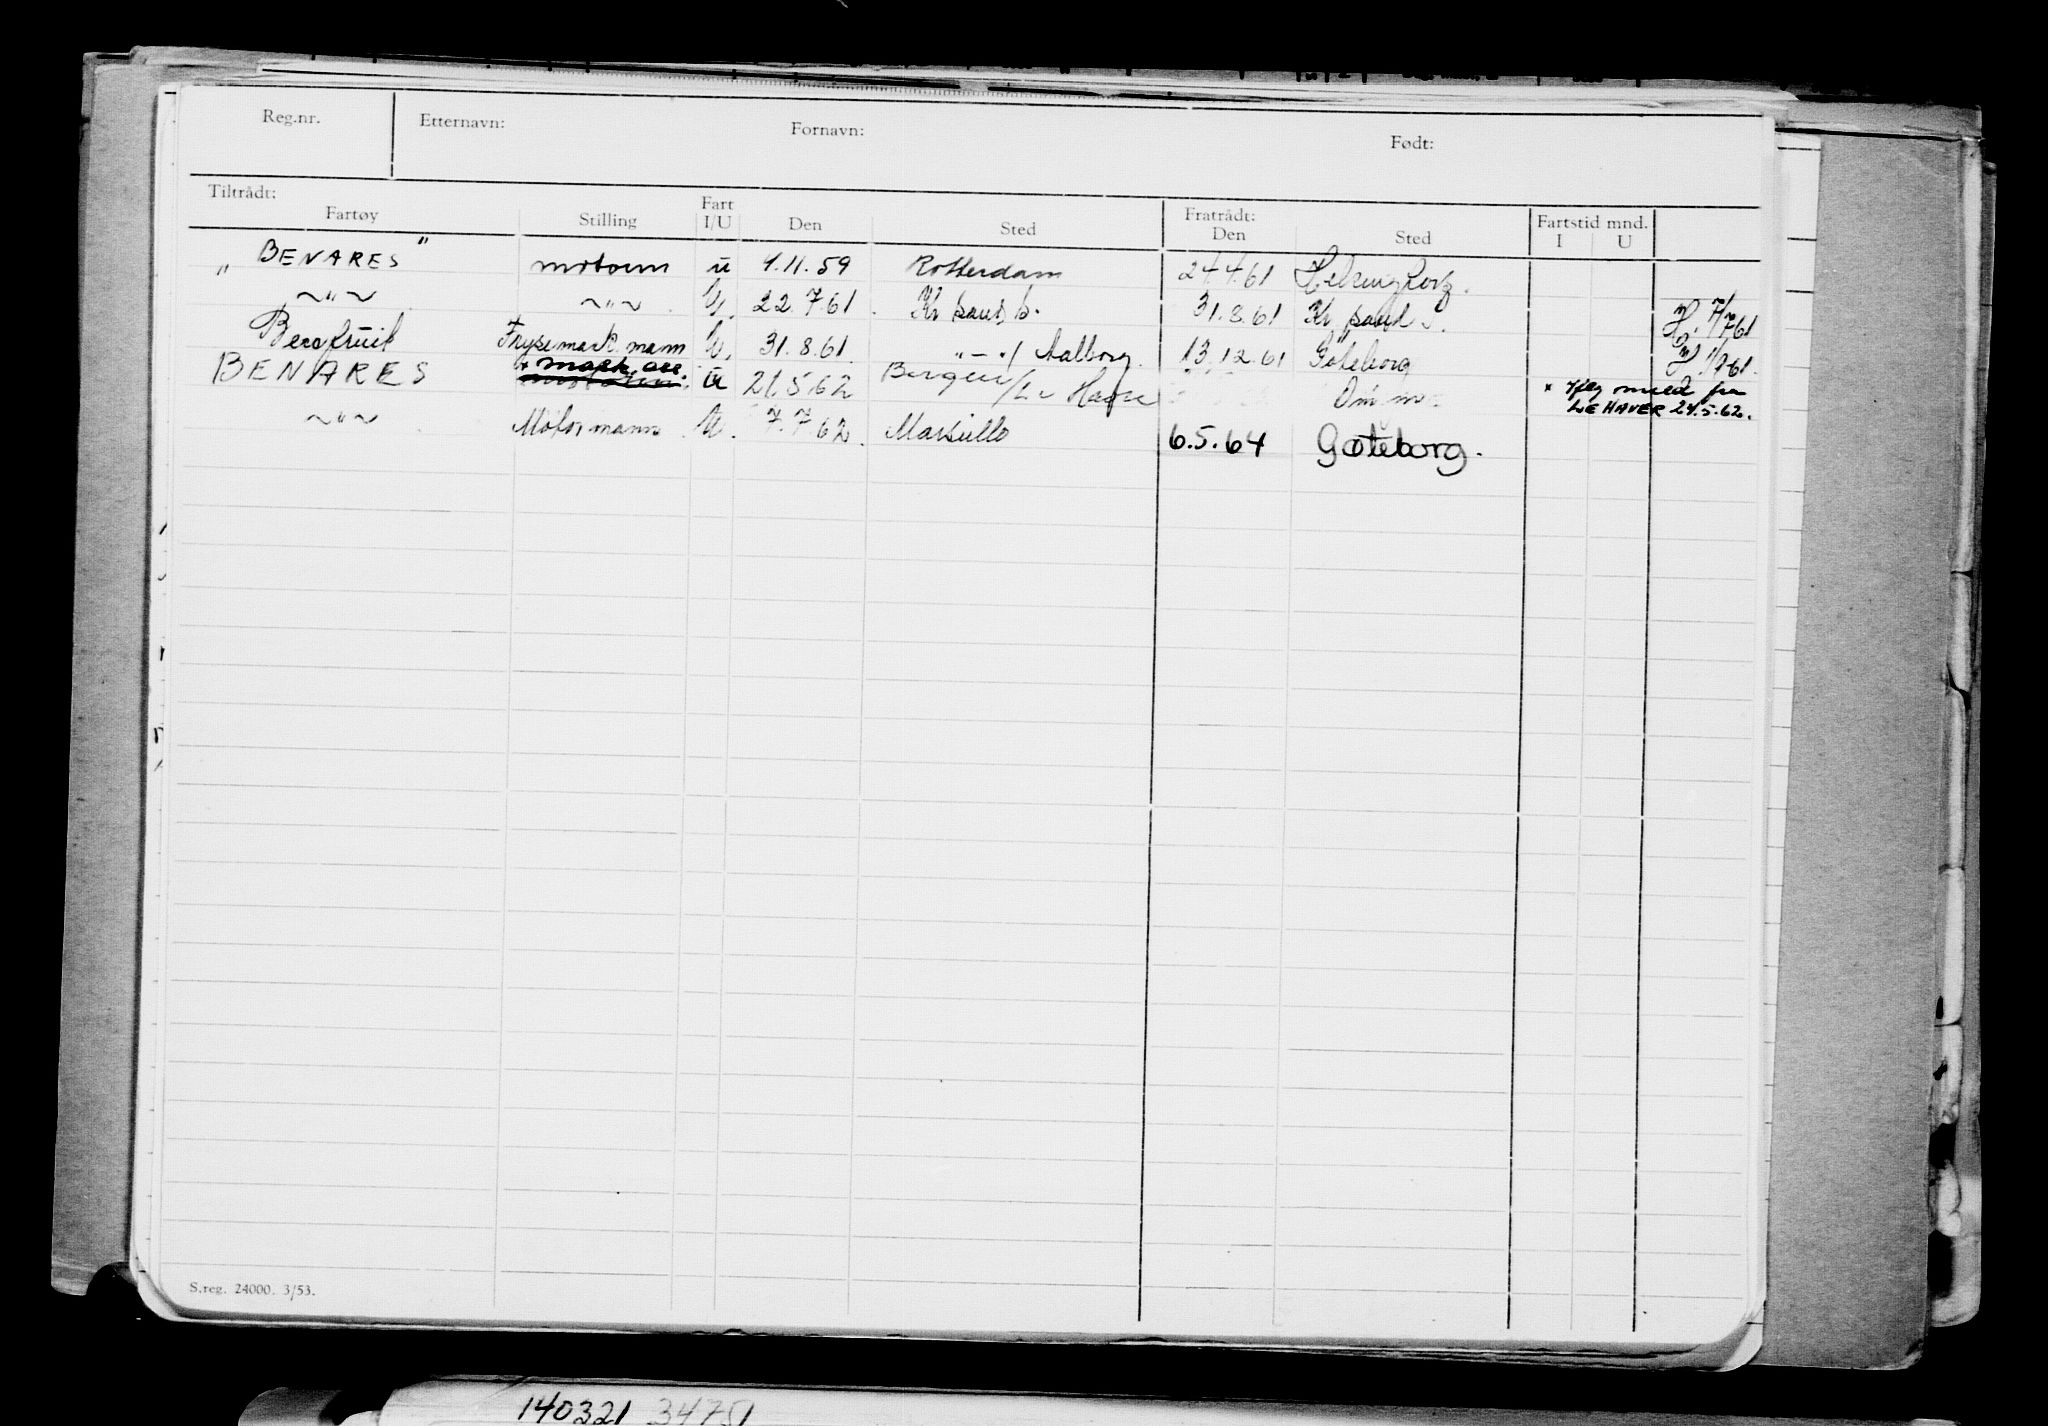 Reg.nr. Etternavn: Fornavn: Født:
Tiltrådt: Fratrådt: Fartstid mnd.
Fartøy Stilling Fart I/U Den Sted Den Sted I U
"BENARES" motorm u 1.11.59 Rotterdam 24.4.61 Helsingborg.
~"~ ~"~ U. 22.7.61. Kr sand s. 31.8.61 Kr sand s. 7/761
Bergfruit Frysemask. mann U. 31.8.61. "-"/ Aalborg. 13.12.61 Göteborg 1/961.
BENARES mask. ass. U 21.5.62 Bergen/Le Havre Om m. x fra
LE HAVER 24.5.62.
~"~ Motormann U. 7.7.62. Marseille 6.5.64 Gøteborg.
S.reg. 24000. 3/53.
140321 34751